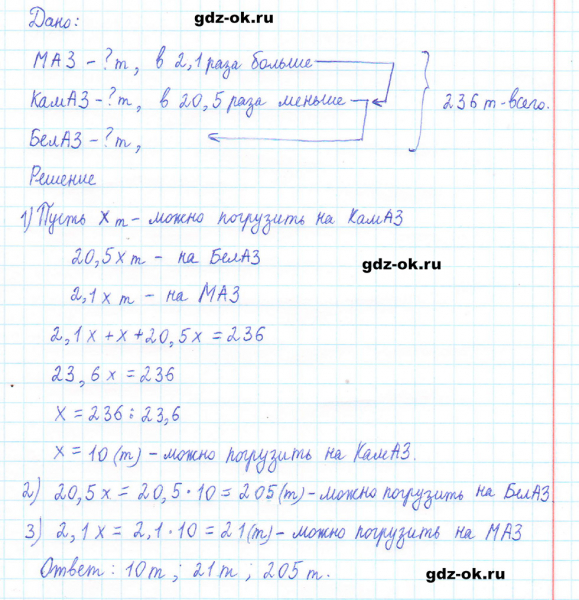 gdz-ok.ru
Дано:
МАЗ - ? т, в 2,1 раза больше
КамАЗ - ? т, в 20,5 раза меньше
236 т - всего.
БелАЗ - ? т,
Решение
1) Пусть x т - можно погрузить на КамАЗ
20,5x т - на БелАЗ
gdz-ok.ru
2,1x т - на МАЗ
2,1x + x + 20,5x = 236
23,6x = 236
x = 236 : 23,6
x = 10 (т) - можно погрузить на КамАЗ.
2) 20,5x = 20,5 · 10 = 205 (т) - можно погрузить на БелАЗ
3) 2,1x = 2,1 · 10 = 21 (т) - можно погрузить на МАЗ
Ответ: 10 т; 21 т; 205 т.
gdz-ok.ru